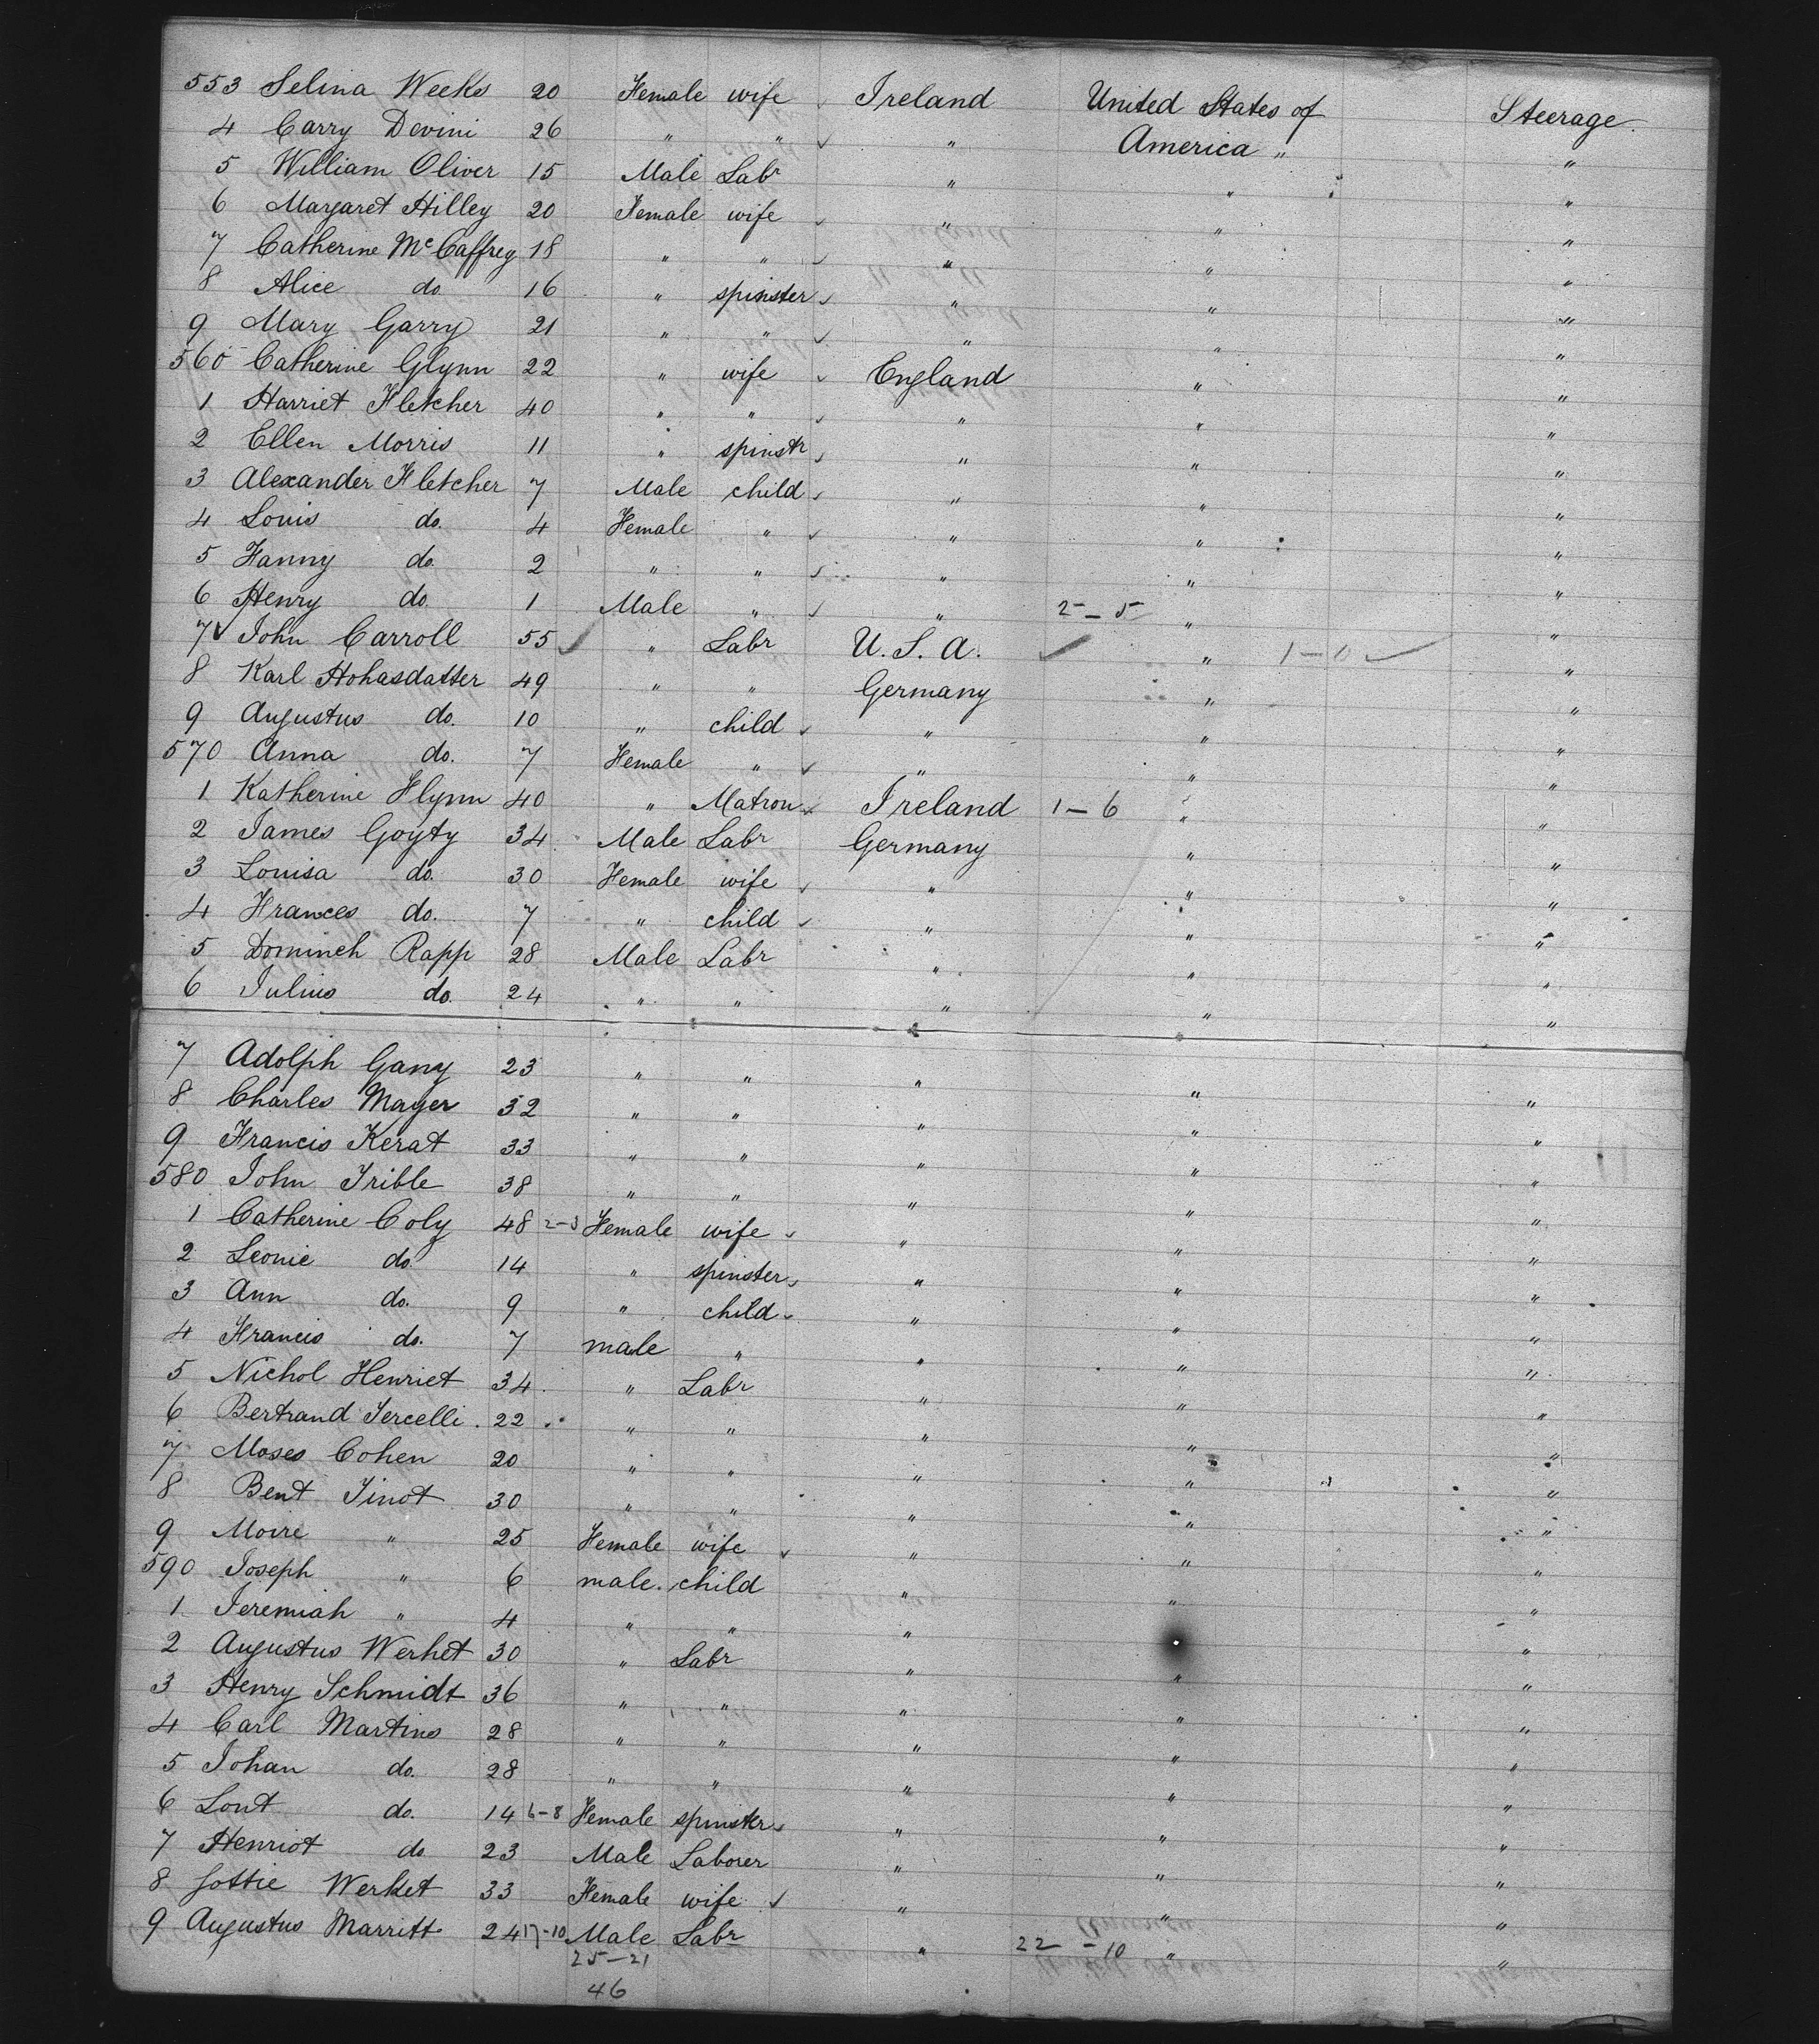 553 Selina Weeks 20 Female wife Ireland United States of America Steerage.
4 Carry Devini 26 " " " " "
5 William Oliver 15 Male Labr " " "
6 Margaret Hilley 20 Female wife " " "
7 Catherine McCaffrey 18 " " " " "
8 Alice do. 16 " spinster " " "
9 Mary Garry 21 " " " " "
560 Catherine Glynn 22 " wife England " "
1 Harriet Fletcher 40 " " " " "
2 Ellen Morris 11 " spinstr " " "
3 Alexander Fletcher 7 Male child " " "
4 Louis do. 4 Female " " " "
5 Fanny do. 2 " " " " "
6 Henry do. 1 Male " " 2-5 " "
7 John Carroll 55 " Labr U.S.A. " 1-0 "
8 Karl Hohasdatter 49 " " Germany " "
9 Augustus do. 10 " child " " "
570 Anna do. 7 Female " " " "
1 Katherine Flynn 40 " Matron Ireland 1-6 " "
2 James Goyty 34 Male Labr Germany " "
3 Louisa do. 30 Female wife " " "
4 Frances do. 7 " child " " "
5 Domineh Rapp 28 Male Labr " " "
6 Julius do. 24 " " " " "
7 Adolph Gany 23 " " " " "
8 Charles Mayer 32 " " " " "
9 Francis Kerat 33 " " " " "
580 John Trible 38 " " " " "
1 Catherine Coly 48 2-3 Female wife " " "
2 Leonie do. 14 " spinster " " "
3 Ann do. 9 " child " " "
4 Francis do. 7 male " " " "
5 Nichol Henriet 34 " Labr " " "
6 Bertrand Tercelli 22 " " " " "
7 Moses Cohen 20 " " " " "
8 Bent Tinot 30 " " " " "
9 Moire " 25 Female wife " " "
590 Joseph " 6 male child " " "
1 Jeremiah " 4 " " " " "
2 Augustus Werhet 30 " Labr " " "
3 Henry Schmidt 36 " " " " "
4 Carl Martins 28 " " " " "
5 Johan do. 28 " " " " "
6 Lont do. 14 6-8 Female spinster " " "
7 Henriot do 23 Male Laborer " " "
8 Gottie Werket 33 Female wife " " "
9 Augustus Marritt 24 17-10 Male Labr " 22-10 " "
25-21
46